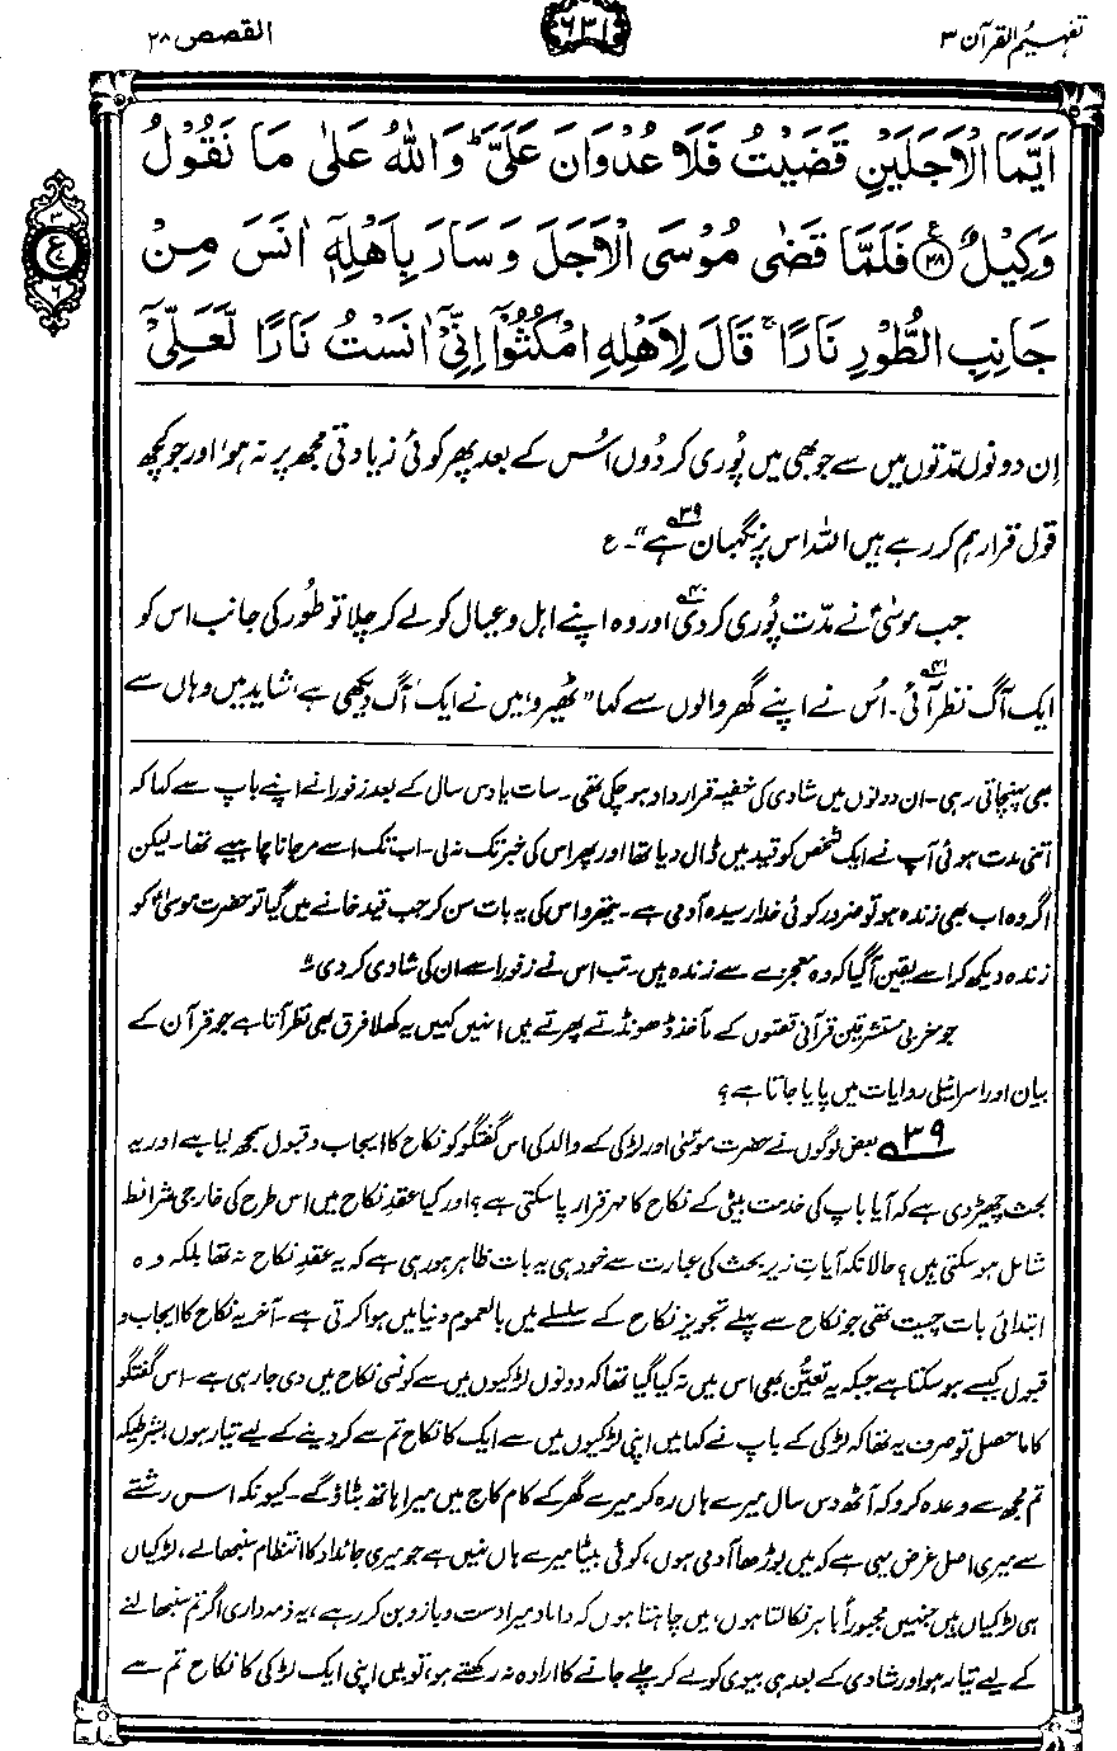 تفہیم القرآن ۳
۶۳۱
القصص ۲۸
اَيَّمَا الْاَجَلَيْنِ قَضَيْتُ فَلَا عُدْوَانَ عَلَيَّ ؕ وَاللّٰهُ عَلٰى مَا نَقُوْلُ
وَكِيْلٌ ۝۲۸ فَلَمَّا قَضٰى مُوْسَى الْاَجَلَ وَسَارَ بِاَهْلِهٖۤ اٰنَسَ مِنْ
جَانِبِ الطُّوْرِ نَارًا ۚ قَالَ لِاَهْلِهِ امْكُثُوْۤا اِنِّيْۤ اٰنَسْتُ نَارًا لَّعَلِّيْۤ
۳
ع
۶
اِن دونوں مدّتوں میں سے جو بھی میں پُوری کر دُوں اُس کے بعد پھر کوئی زیادتی مجھ پر نہ ہو، اور جو کچھ
قول قرار ہم کر رہے ہیں اللہ اس پر نگہبان ہے۳۹“۔ ع
جب موسیٰؑ نے مدّت پُوری کر دی۴۰ اور وہ اپنے اہل و عیال کو لے کر چلا تو طُور کی جانب اس کو
ایک آگ نظر آئی۴۱۔ اُس نے اپنے گھر والوں سے کہا ”ٹھیرو، میں نے ایک آگ دیکھی ہے، شاید میں وہاں سے
بھی پہنچاتی رہی۔ ان دونوں میں شادی کی خفیہ قرارداد ہو چکی تھی۔ سات یا دس سال کے بعد زفورا نے اپنے باپ سے کہا کہ
اتنی مدت ہوئی آپ نے ایک شخص کو قید میں ڈال دیا تھا اور پھر اس کی خبر تک نہ لی۔ اب تک اسے مر جانا چاہیے تھا۔ لیکن
اگر وہ اب بھی زندہ ہو تو ضرور کوئی خدا رسیدہ آدمی ہے۔ یتھرو اس کی یہ بات سن کر جب قید خانے میں گیا تو حضرت موسیٰؑ کو
زندہ دیکھ کر اسے یقین آگیا کہ وہ معجزے سے زندہ ہیں۔ تب اس نے زفورا سے ان کی شادی کر دی“۔
جو مغربی مستشرقین قرآنی قصّوں کے مآخذ ڈھونڈتے پھرتے ہیں انہیں کہیں یہ کھلا فرق بھی نظر آتا ہے جو قرآن کے
بیان اور اسرائیلی روایات میں پایا جاتا ہے؟
۳۹ بعض لوگوں نے حضرت موسیٰؑ اور لڑکی کے والد کی اس گفتگو کو نکاح کا ایجاب و قبول سمجھ لیا ہے اور یہ
بحث چھیڑ دی ہے کہ آیا باپ کی خدمت بیٹی کے نکاح کا مہر قرار پا سکتی ہے؟ اور کیا عقدِ نکاح میں اس طرح کی خارجی شرائط
شامل ہو سکتی ہیں؟ حالانکہ آیاتِ زیر بحث کی عبارت سے خود ہی یہ بات ظاہر ہو رہی ہے کہ یہ عقدِ نکاح نہ تھا بلکہ وہ
ابتدائی بات چیت تھی جو نکاح سے پہلے تجویزِ نکاح کے سلسلے میں بالعموم دنیا میں ہوا کرتی ہے۔ آخر یہ نکاح کا ایجاب و
قبول کیسے ہو سکتا ہے جبکہ یہ تعیُّن بھی اس میں نہ کیا گیا تھا کہ دونوں لڑکیوں میں سے کونسی نکاح میں دی جا رہی ہے۔ اس گفتگو
کا ماحصل تو صرف یہ تھا کہ لڑکی کے باپ نے کہا میں اپنی لڑکیوں میں سے ایک کا نکاح تم سے کر دینے کے لیے تیار ہوں بشرطیکہ
تم مجھ سے وعدہ کرو کہ آٹھ دس سال میرے ہاں رہ کر میرے گھر کے کام کاج میں میرا ہاتھ بٹاؤ گے۔ کیونکہ اس رشتے
سے میری اصل غرض یہی ہے کہ میں بوڑھا آدمی ہوں، کوئی بیٹا میرے ہاں نہیں ہے جو میری جائداد کا انتظام سنبھالے، لڑکیاں
ہی لڑکیاں ہیں جنہیں مجبوراً باہر نکالتا ہوں، میں چاہتا ہوں کہ داماد میرا دست و بازو بن کر رہے، یہ ذمہ داری اگر تم سنبھالنے
کے لیے تیار ہو اور شادی کے بعد ہی بیوی کو لے کر چلے جانے کا ارادہ نہ رکھتے ہو، تو میں اپنی ایک لڑکی کا نکاح تم سے